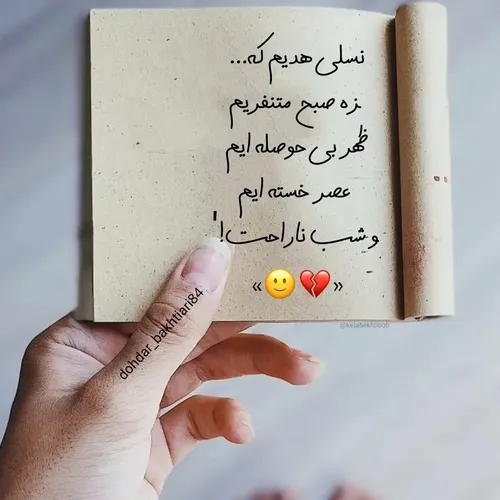 نسلی هدیم که...
زه صبح متنفریم
ظهر بی حوصله ایم
عصر خسته ایم
و شب ناراحت!'
«🙂💔»
@ketabekhoob
dohdar_bakhtiari84